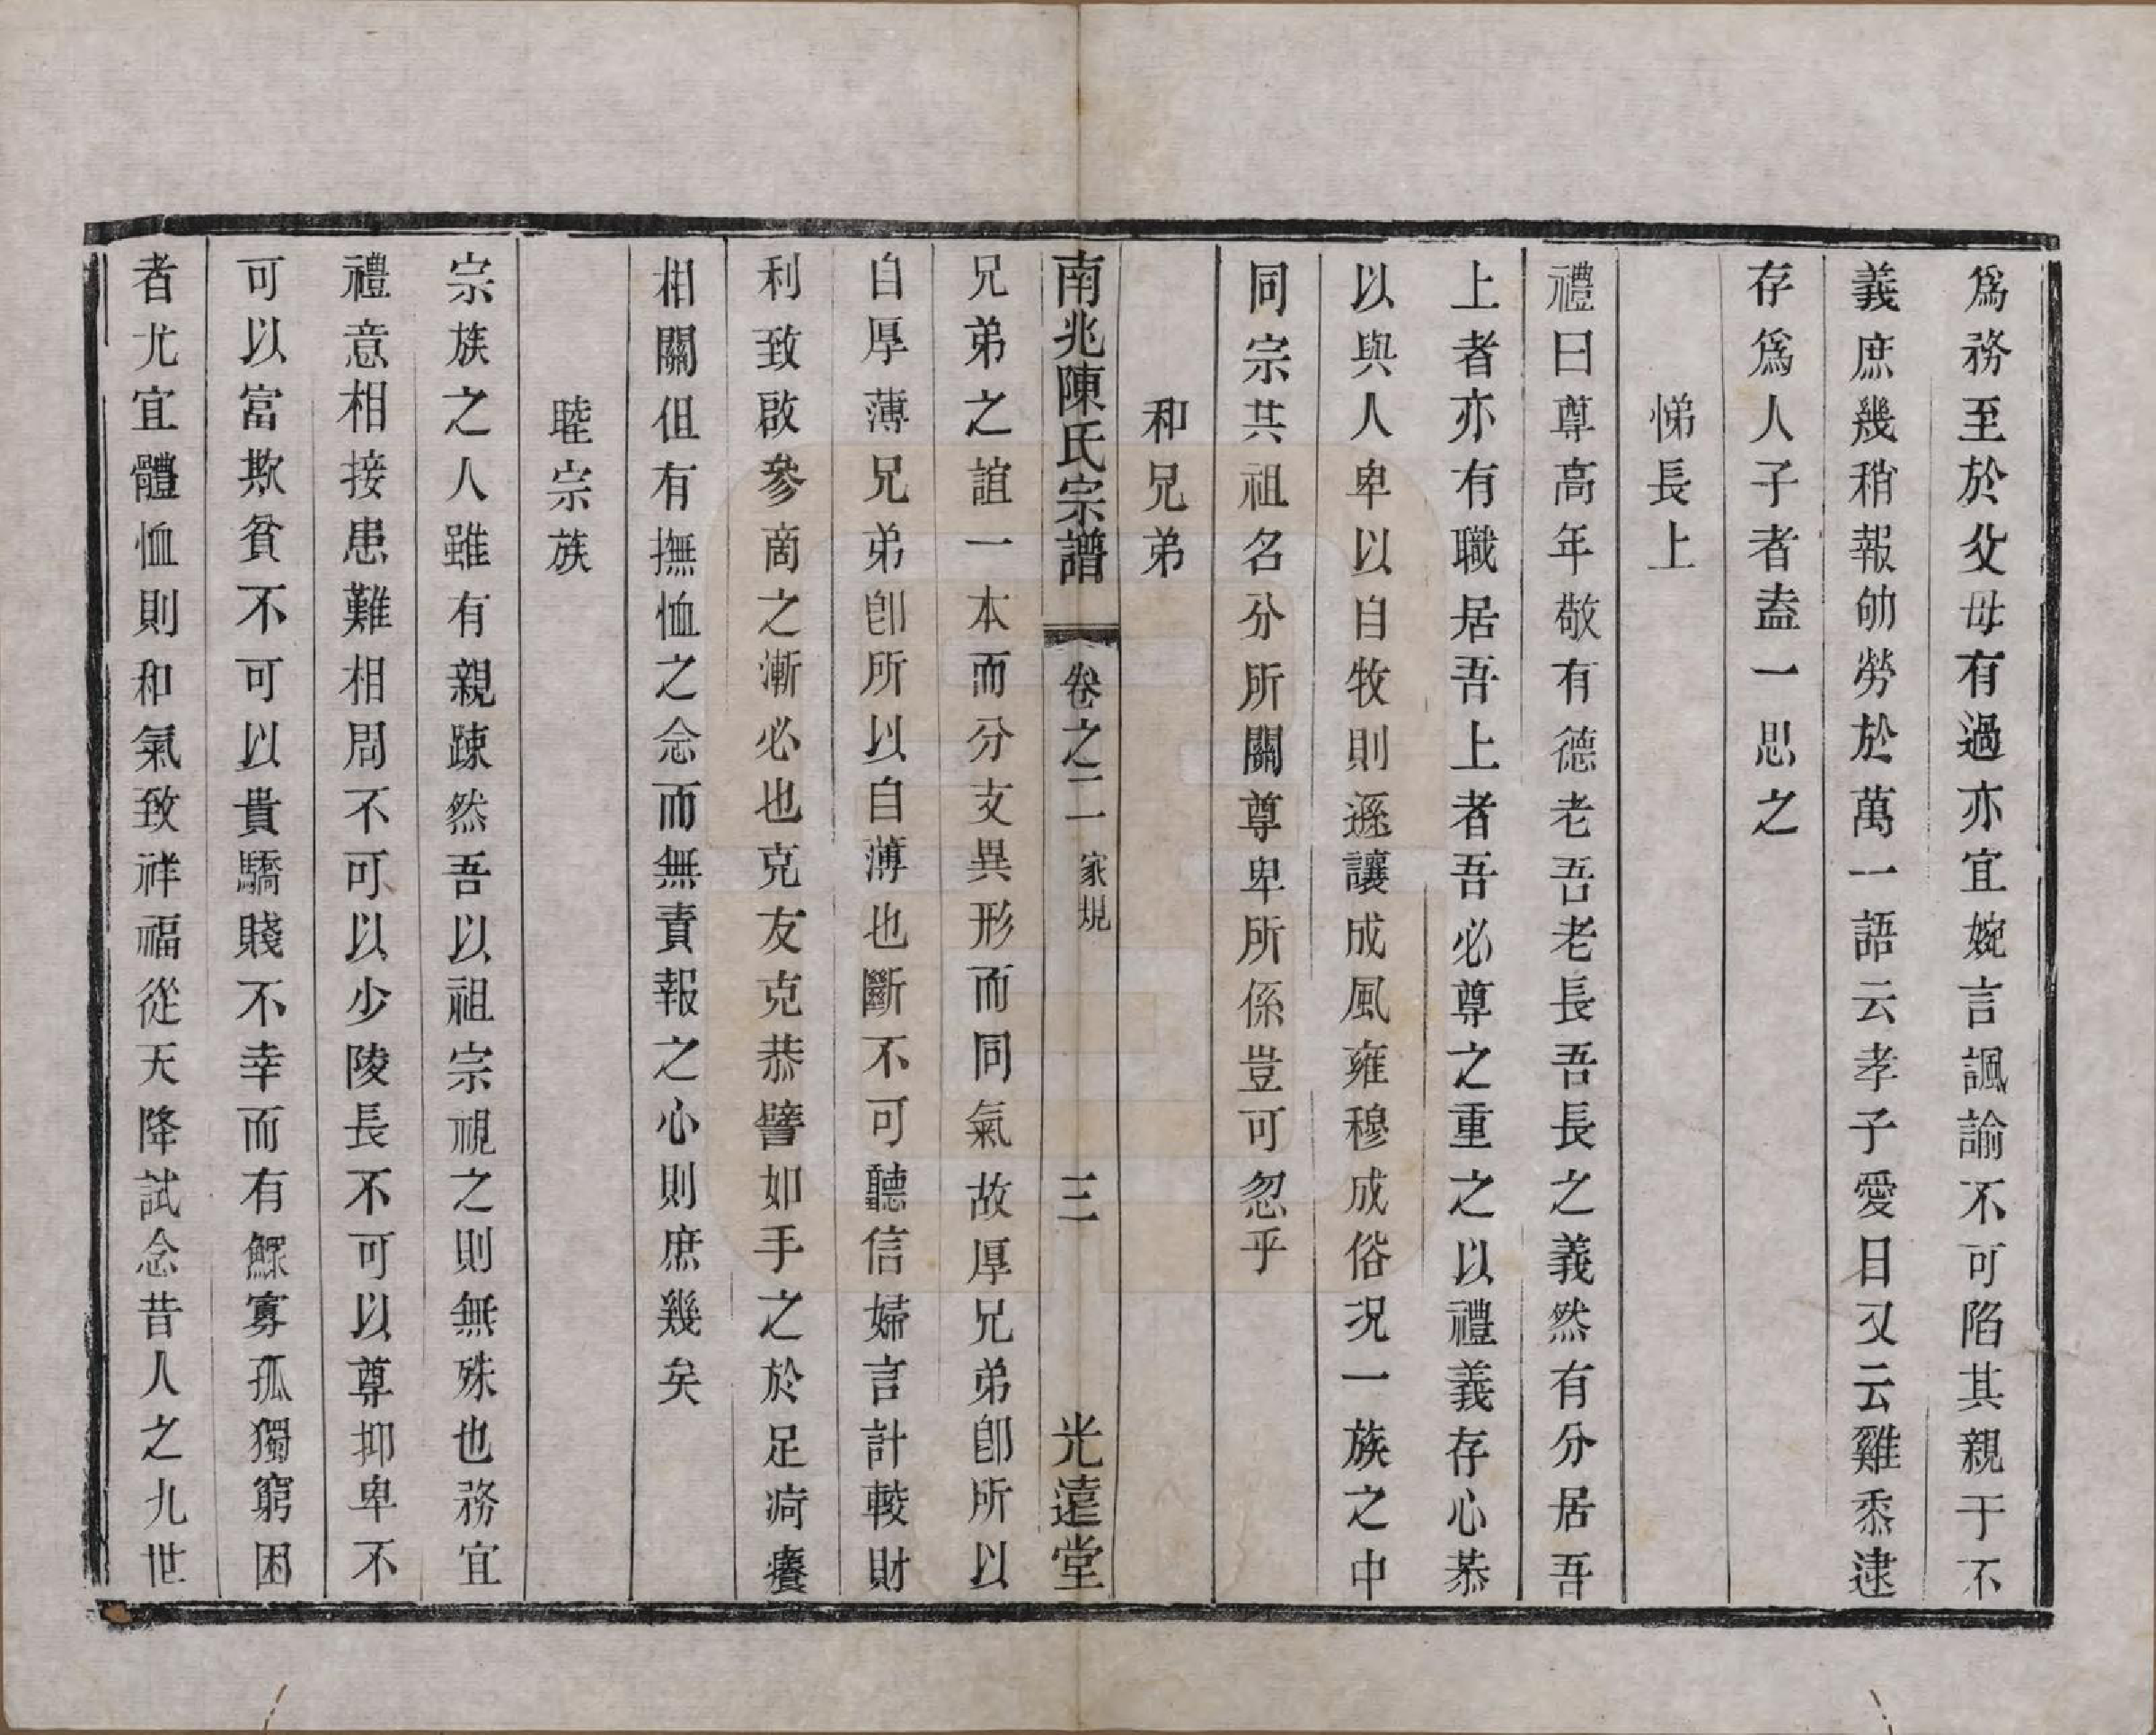 爲務至於父母有過亦宜婉言諷諭不可陷其親于不
義庶幾稍報劬勞於萬一語云孝子愛日又云雞黍逮
存爲人子者盍一思之
悌長上
禮曰尊高年敬有德老吾老長吾長之義然有分居吾
上者亦有職居吾上者吾必尊之重之以禮義存心恭
以與人卑以自牧則遜讓成風雍穆成俗況一族之中
同宗共祖名分所關尊卑所係豈可忽乎
和兄弟
南兆陳氏宗譜 卷之二 家規 三 光遠堂
兄弟之誼一本而分支異形而同氣故厚兄弟卽所以
自厚薄兄弟卽所以自薄也斷不可聽信婦言計較財
利致啟參商之漸必也克友克恭譬如手之於足疴癢
相關但有撫恤之念而無責報之心則庶幾矣
睦宗族
宗族之人雖有親踈然吾以祖宗視之則無殊也務宜
禮意相接患難相周不可以少陵長不可以尊抑卑不
可以富欺貧不可以貴驕賤不幸而有鰥寡孤獨窮困
者尤宜體恤則和氣致祥福從天降試念昔人之九世